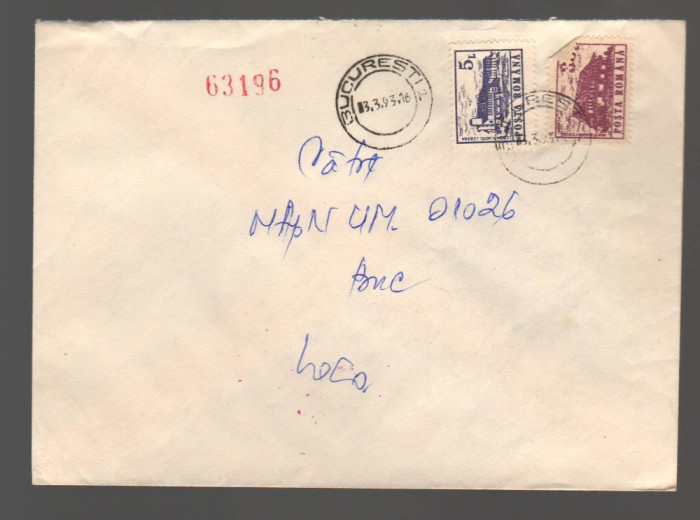 63196
BUCUREȘTI 2
3.3.93.16
5L
POSTA ROMANA
POSTA ROMANA
Către
MApN UM. 01026
Buc
Loco